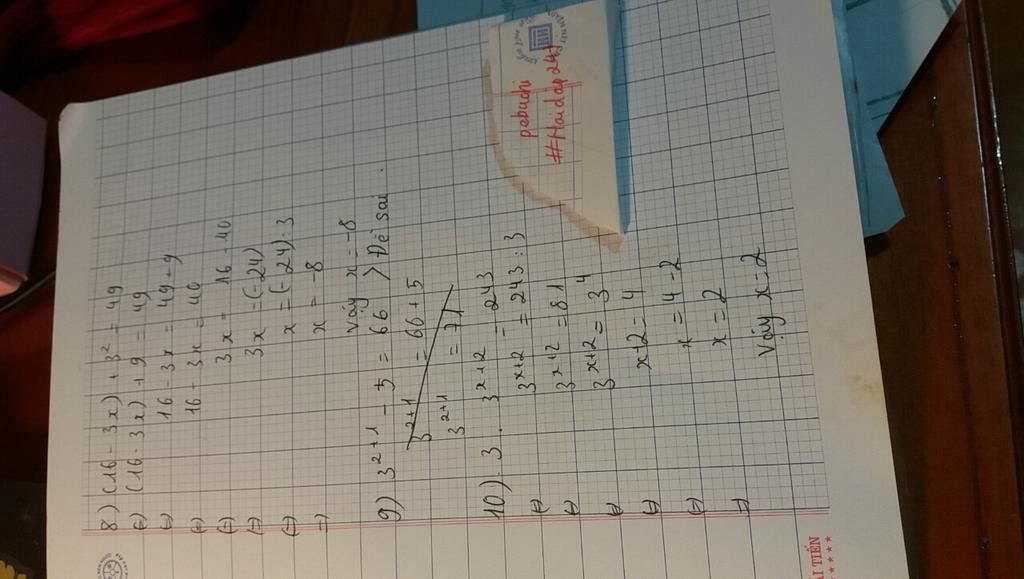 8) (16 - 3x) + 3² = 49
(=) (16 - 3x) + 9 = 49
(=) 16 - 3x = 49 - 9
(=) 16 - 3x = 40
(=) 3x = 16 - 40
(=) 3x = (-24)
(=) x = (-24) : 3
=) x = -8
Vậy x = -8
9) 3²⁺¹ - 5 = 66 > Đề sai.
3²⁺¹ = 66 + 5
3²⁺¹ = 71
10) 3. 3ˣ⁺² = 243
(=) 3ˣ⁺² = 243 : 3
(=) 3ˣ⁺² = 81
(=) 3ˣ⁺² = 3⁴
(=) x+2 = 4
(=) x = 4 - 2
=) x = 2
Vậy x = 2
pebuchi
#Hoidap247
ẢI TIẾN